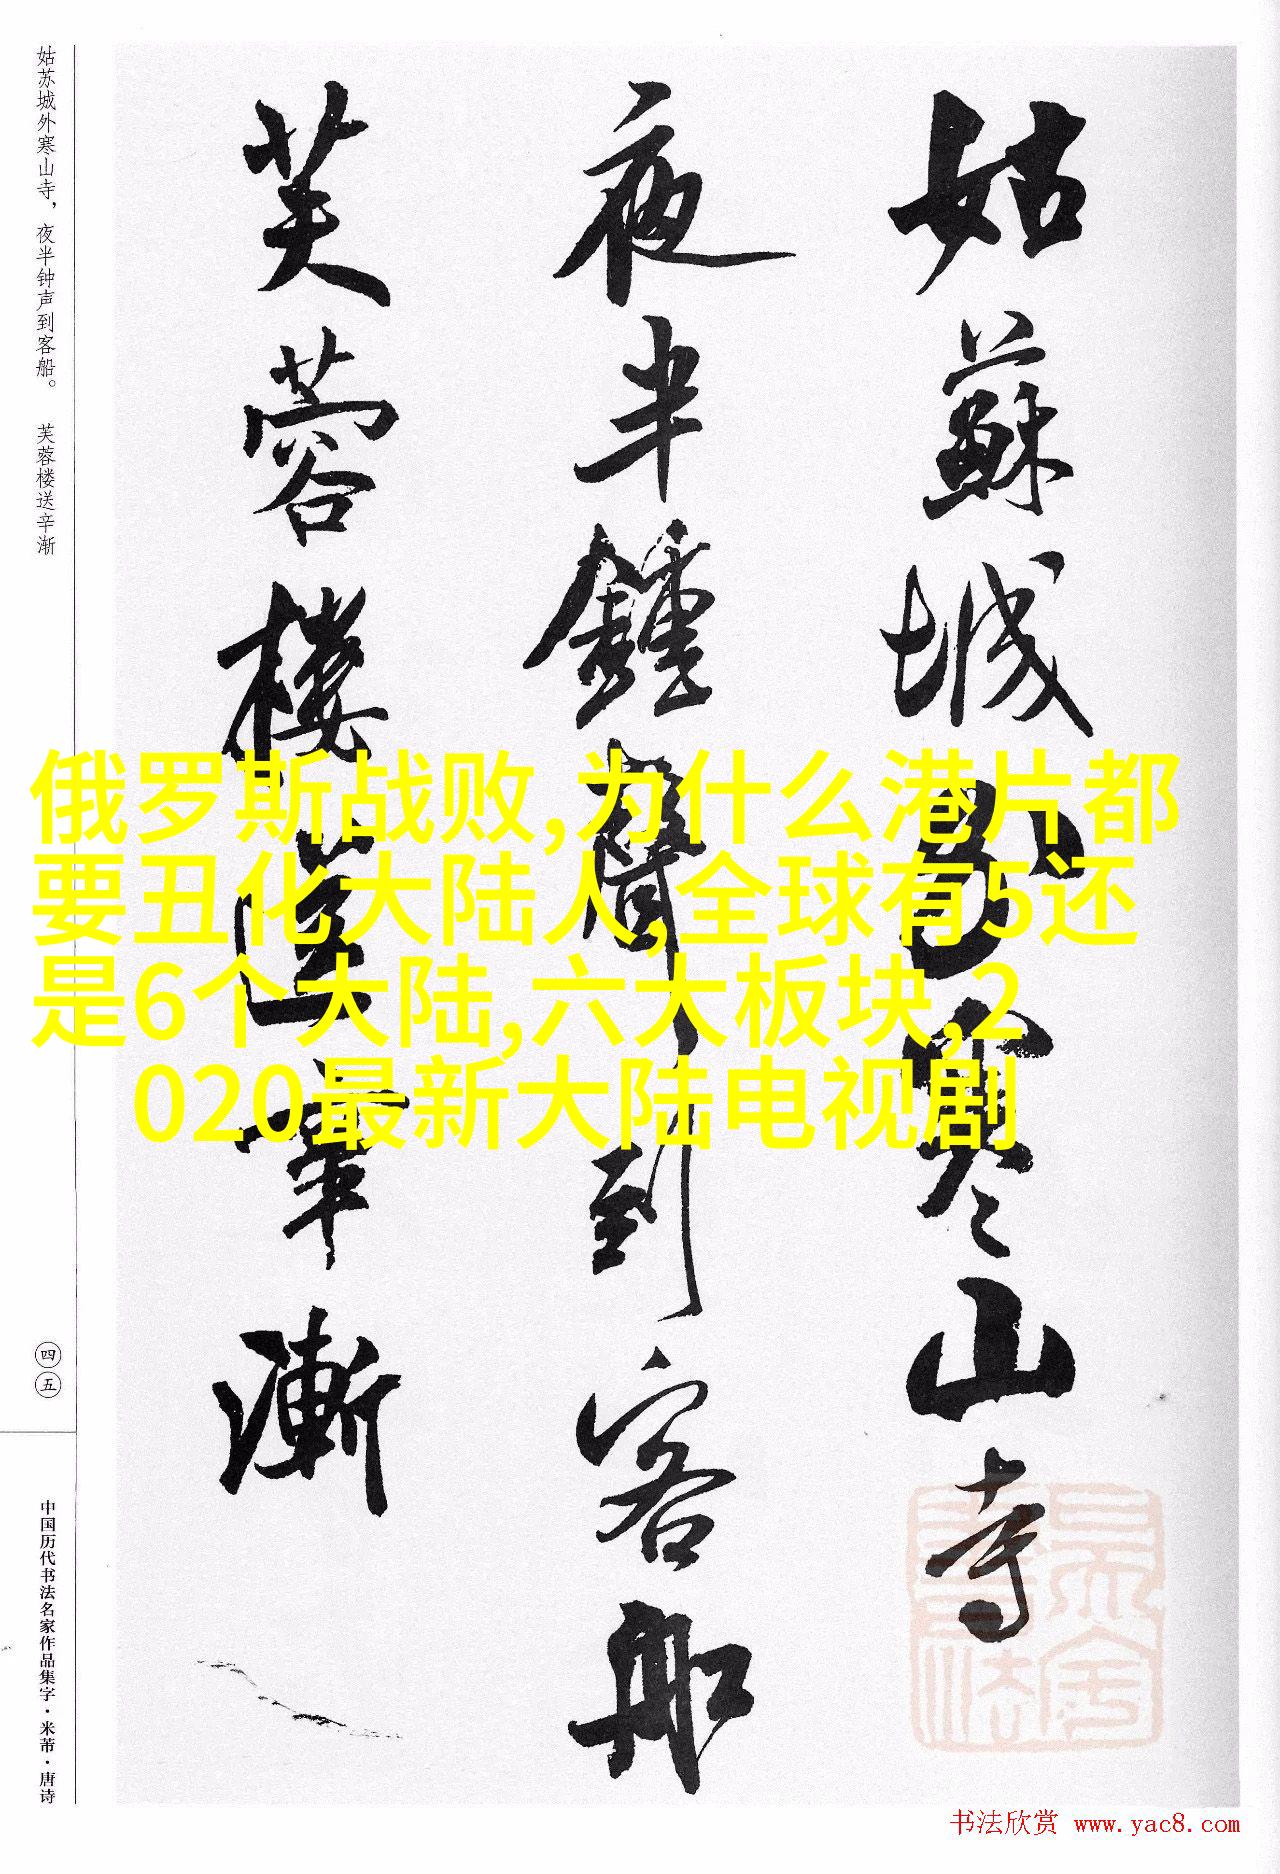 姑蘇城外寒山寺
夜半鍾聲到客船
芙蓉樓送辛漸
姑苏城外寒山寺，夜半钟声到客船。 芙蓉楼送辛渐
四五
中国历代书法名家作品集字·米芾·唐诗
俄罗斯战败,为什么港片都
要丑化大陆人,全球有5还
是6个大陆,六大板块,2
020最新大陆电视剧
书法欣赏 www.yac8.com